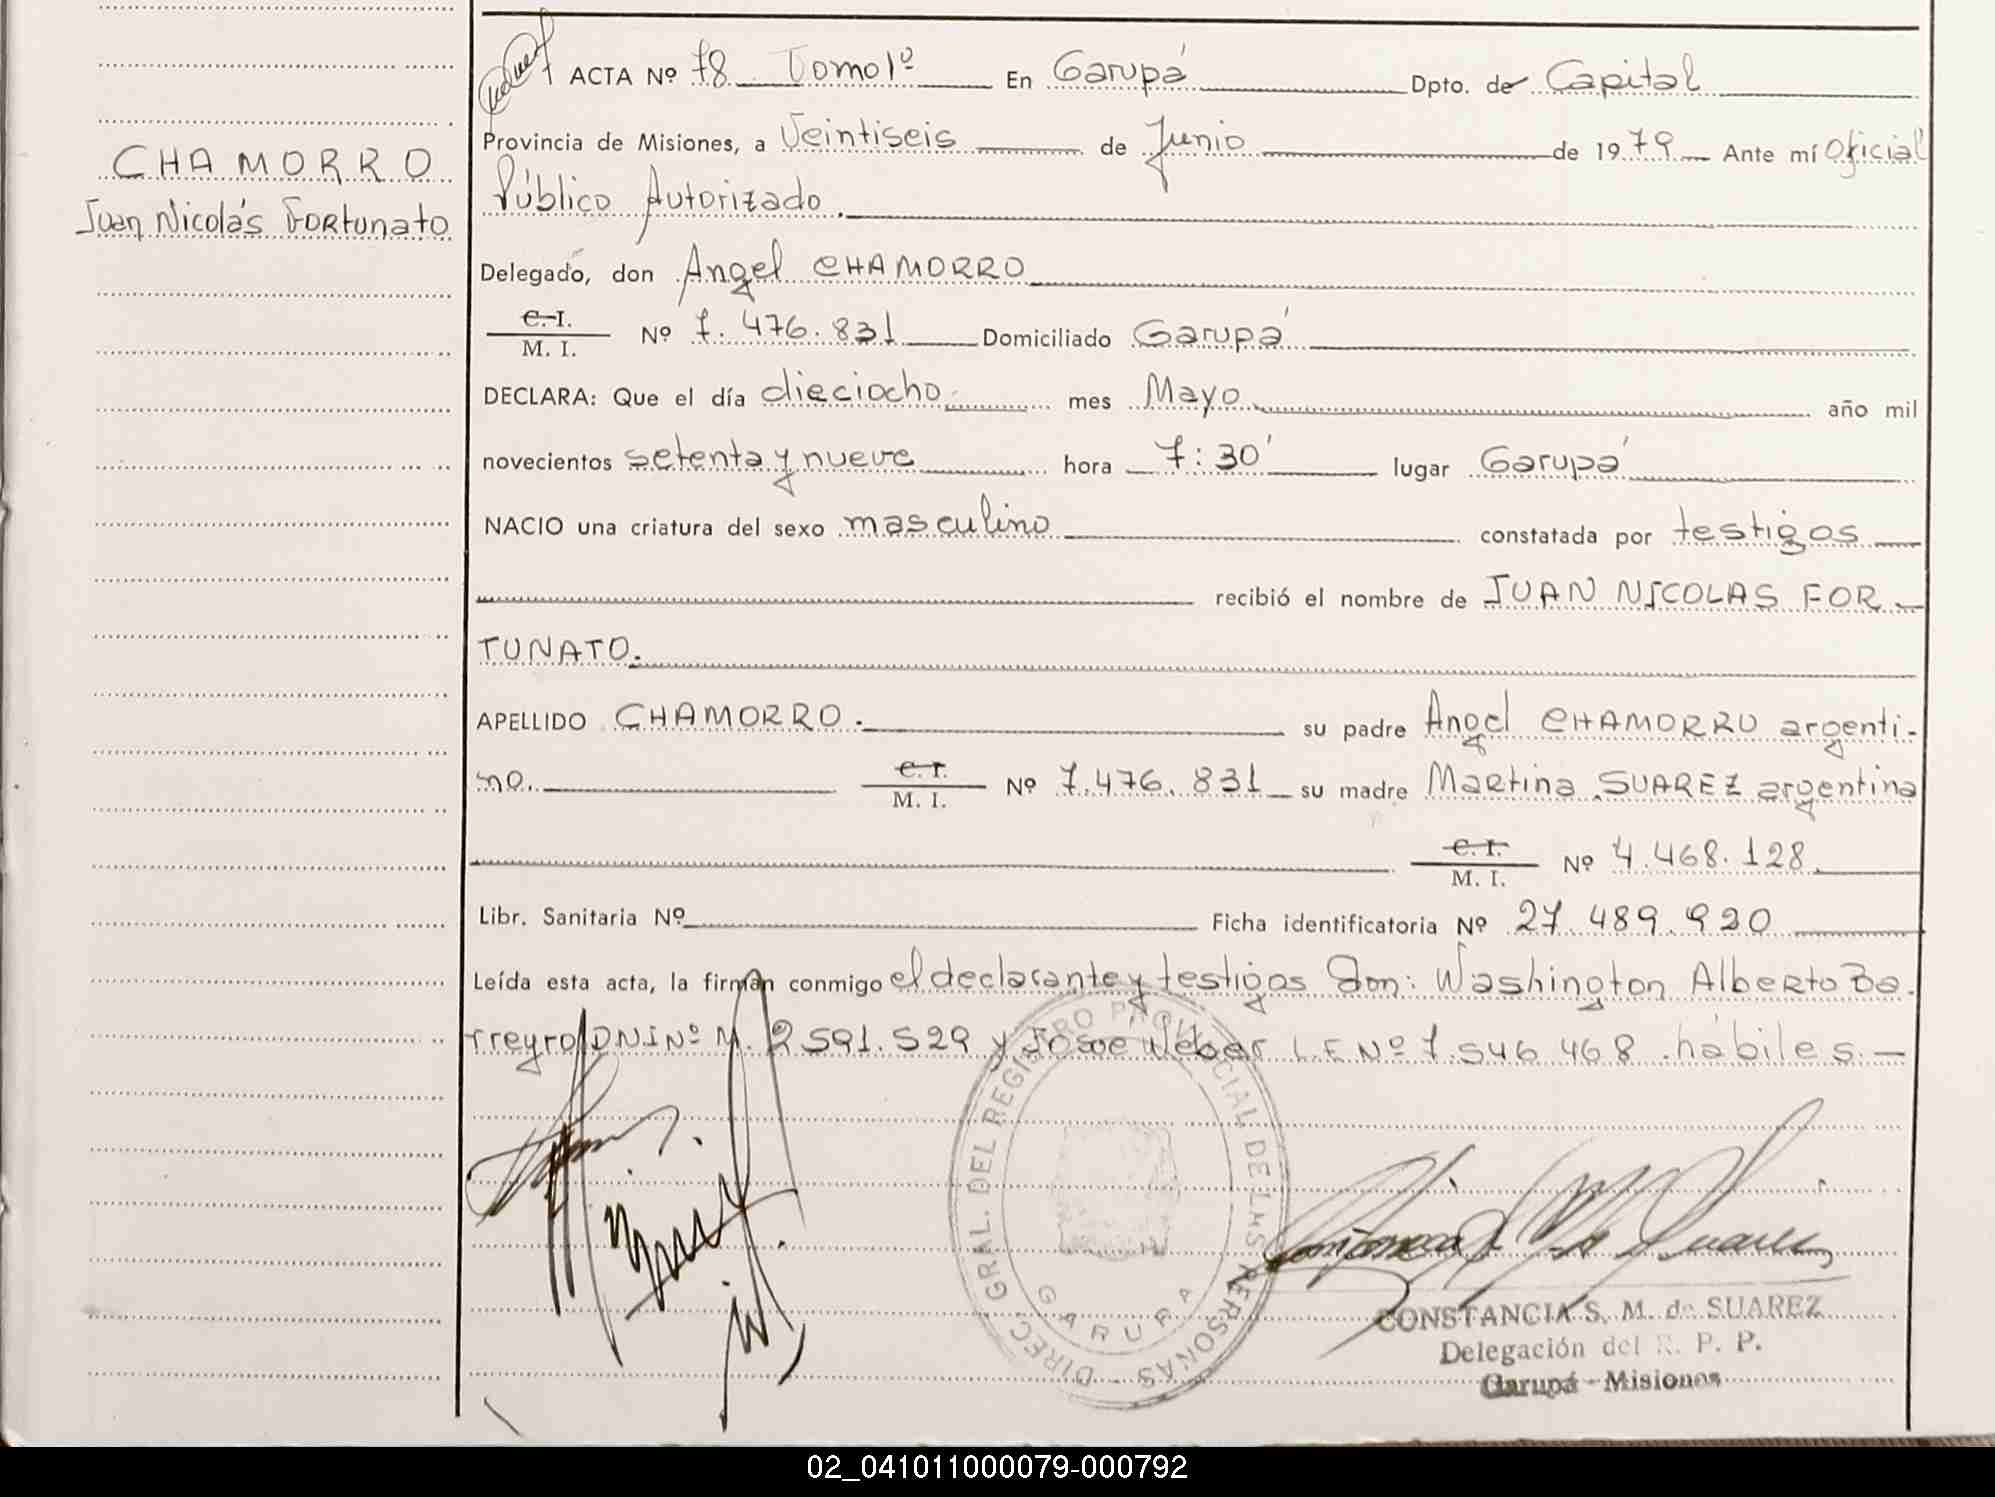 ACTA Nº 78 Tomo 1º En Garupá Dpto. de Capital
Provincia de Misiones, a Veintiseis de Junio de 1979 Ante mí Oficial
CHAMORRO
Público Autorizado.
Juan Nicolás Fortunato
Delegado, don Angel CHAMORRO
C. I.
M. I. Nº 7.476.831 Domiciliado Garupá
DECLARA: Que el día dieciocho mes Mayo año mil
novecientos setenta y nueve hora 7:30' lugar Garupá
NACIO una criatura del sexo masculino constatada por testigos
recibió el nombre de JUAN NICOLAS FOR-
TUNATO.
APELLIDO CHAMORRO. su padre Angel CHAMORRO argenti-
no. C. I.
M. I. Nº 7.476.831 su madre Martina SUAREZ argentina
C. I.
M. I. Nº 4.468.128
Libr. Sanitaria Nº Ficha identificatoria Nº 27.489.920
Leída esta acta, la firman conmigo el declarante y testigos Don: Washington Alberto Ba.
rreyro DNI Nº M. 2591.529 y José Weber L.E Nº 7.546.468 hábiles.—
DIREC. GRAL. DEL REGISTRO PROVINCIAL DE LAS PERSONAS -
GARUPA
CONSTANCIA S. M. de SUAREZ
Delegación del R. P. P.
Garupá - Misiones
02_041011000079-000792